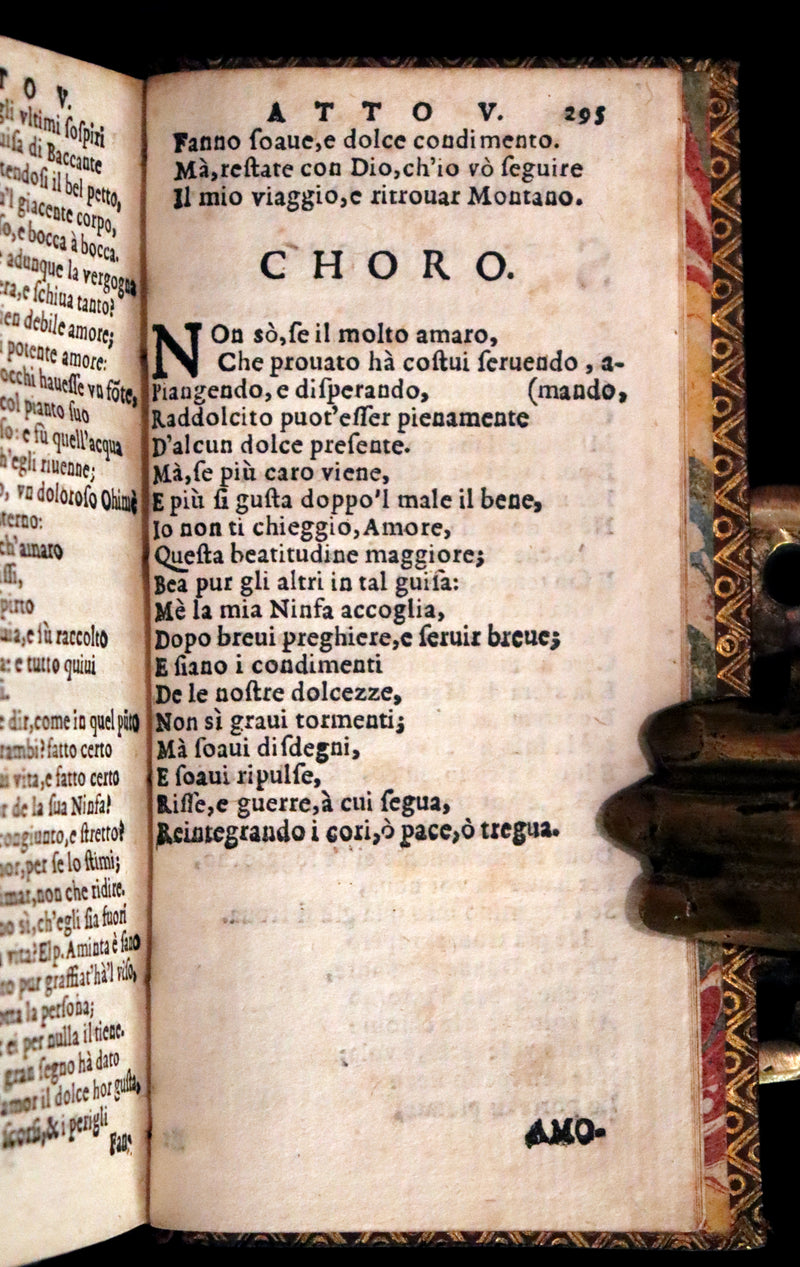 TO V.
gli vltimi ſoſpiri
uiſa di Baccante
tendoſi il bel petto,
'l giacente corpo,
o, e bocca à bocca.
adunque la vergogna
era, e ſchiua tanto?
en debile amore;
i potente amore:
occhi haueſſe vn fõte,
col pianto ſuo
ſo: e fù quell'acqua
h'egli riuenne;
o, vn doloroſo Ohimè
terno:
ch'amaro
ſſi,
pirto
ua, e fù raccolto
a: e tutto quiui
dir, come in quel pũto
rambi? fatto certo
a vita, e fatto certo
r de la ſua Ninfa?
congiunto, e ſtretto?
mor, per ſe lo ſtimi;
mar, non che ridire.
no sì, ch'egli ſia fuori
vita? Elp. Aminta è ſano
ro pur graffiat'hà'l viſo,
la perſona;
e ei per nulla il tiene.
gran ſegno hà dato
amor il dolce hor guſta,
& i perigli
Fan-
ATTO V. 295
Fanno ſoaue, e dolce condimento.
Mà, reſtate con Dio, ch'io vò ſeguire
Il mio viaggio, e ritrouar Montano.
CHORO.
NOn sò, ſe il molto amaro,
Che prouato hà coſtui ſeruendo, a-
Piangendo, e diſperando, (mando,
Raddolcito puot'eſſer pienamente
D'alcun dolce preſente.
Mà, ſe più caro viene,
E più ſi guſta doppo'l male il bene,
Io non ti chieggio, Amore,
Queſta beatitudine maggiore;
Bea pur gli altri in tal guiſa:
Mè la mia Ninfa accoglia,
Dopo breui preghiere, e ſeruir breue;
E ſiano i condimenti
De le noſtre dolcezze,
Non sì graui tormenti;
Mà ſoaui diſdegni,
E ſoaui ripulſe,
Riſſe, e guerre, à cui ſegua,
Reintegrando i cori, ò pace, ò tregua.
AMO-